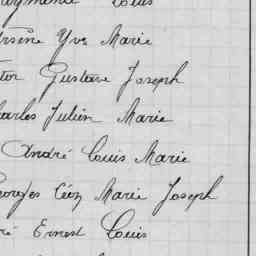 Louis
Yves Marie
Gustave Joseph
Charles Julien Marie
André Louis Marie
Georges Léon Marie Joseph
Ernest Louis